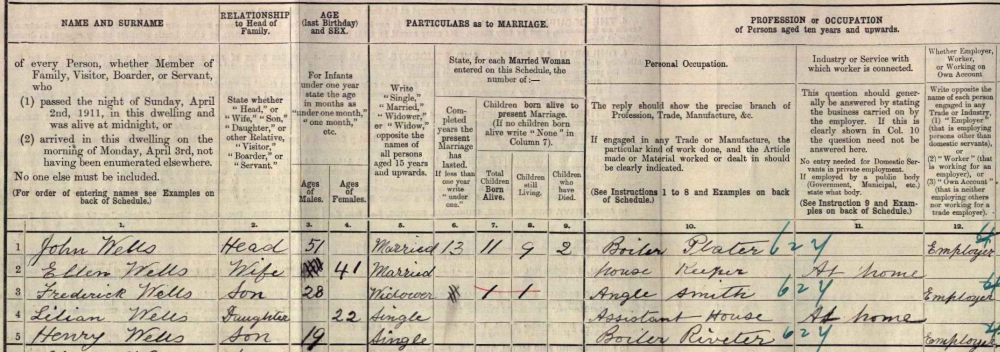 NAME AND SURNAME
of every Person, whether Member of
Family, Visitor, Boarder, or Servant,
who
(1) passed the night of Sunday, April
2nd, 1911, in this dwelling and
was alive at midnight, or
(2) arrived in this dwelling on the
morning of Monday, April 3rd, not
having been enumerated elsewhere.
No one else must be included.
(For order of entering names see Examples on
back of Schedule.)
RELATIONSHIP
to Head of
Family.
State whether
"Head," or
"Wife," "Son,"
"Daughter," or
other Relative,
"Visitor,"
"Boarder," or
"Servant."
AGE
(last Birthday)
and SEX.
For Infants
under one year
state the age
in months as
"under one month,"
"one month,"
etc.
Ages
of
Males.
Ages
of
Females.
PARTICULARS as to MARRIAGE.
Write
"Single,"
"Married,"
"Widower,"
or "Widow,"
opposite the
names of
all persons
aged 15 years
and upwards.
State, for each Married Woman
entered on this Schedule, the
number of:—
Com-
pleted
years the
present
Marriage
has
lasted.
If less than
one year
write
"under
one."
Children born alive to
present Marriage.
(If no children born
alive write "None" in
Column 7).
Total
Children
Born
Alive.
Children
still
Living.
Children
who
have
Died.
PROFESSION or OCCUPATION
of Persons aged ten years and upwards.
Personal Occupation.
The reply should show the precise branch of
Profession, Trade, Manufacture, &c.
If engaged in any Trade or Manufacture, the
particular kind of work done, and the Article
made or Material worked or dealt in should
be clearly indicated.
(See Instructions 1 to 8 and Examples on back
of Schedule.)
Industry or Service with
which worker is connected.
This question should gener-
ally be answered by stating
the business carried on
by the employer. If this is
clearly shown in Col. 10
the question need not be
answered here.
No entry needed for Domestic Ser-
vants in private employment.
If employed by a public body
(Government, Municipal, etc.)
state what body.
(See Instruction 9 and Exam-
ples on back of Schedule.)
Whether Employer,
Worker,
or Working on
Own Account
Write opposite the
name of each person
engaged in any
Trade or Industry,
(1) "Employer"
(that is employing
persons other than
domestic servants),
or
(2) "Worker" (that
is working for an
employer), or
(3) "Own Account"
(that is neither
employing others
nor working for a
trade employer).
1. 2. 3. 4. 5. 6. 7. 8. 9. 10. 11. 12.
1 John Wells Head 51 Married 13 11 9 2 Boiler Plater 624 Employer
2 Ellen Wells Wife 41 Married house Keeper At home
3 Frederick Wells Son 28 Widower 1 1 Angle smith 624 Employer
4 Lilian Wells Daughter 22 Single Assistant House At home
5 Henry Wells Son 19 Single Boiler Riveter 624 Employer